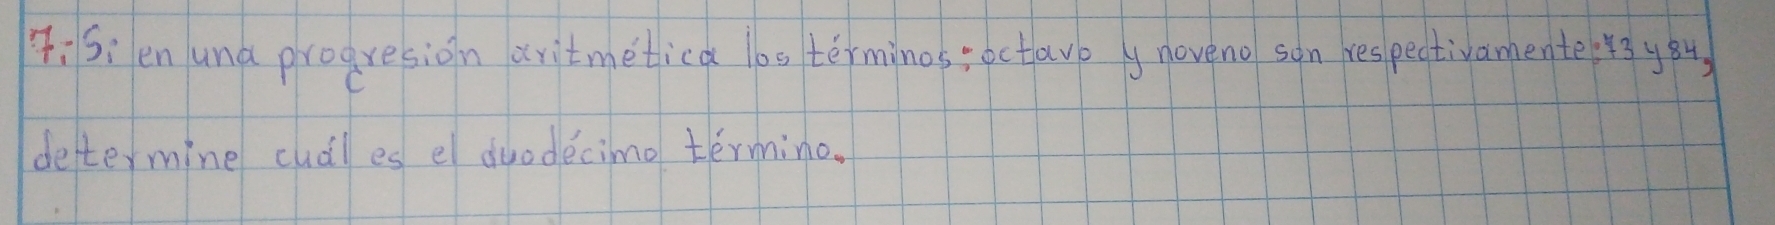 7.- Si en una progresión aritmética los términos: octavo y noveno son respectivamente: 73 y 84,
determine cuál es el duodécimo término.